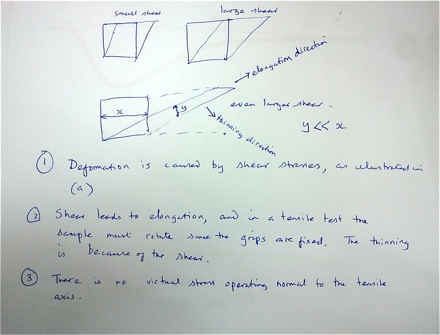 small shear
large shear
elongation direction
x
y
even larger shear.
thinning direction
y << x
① Deformation is caused by shear stresses, as illustrated in
(a)
② Shear leads to elongation, and in a tensile test the
sample must rotate since the grips are fixed. The thinning
is because of the shear.
③ There is no virtual stress operating normal to the tensile
axis.